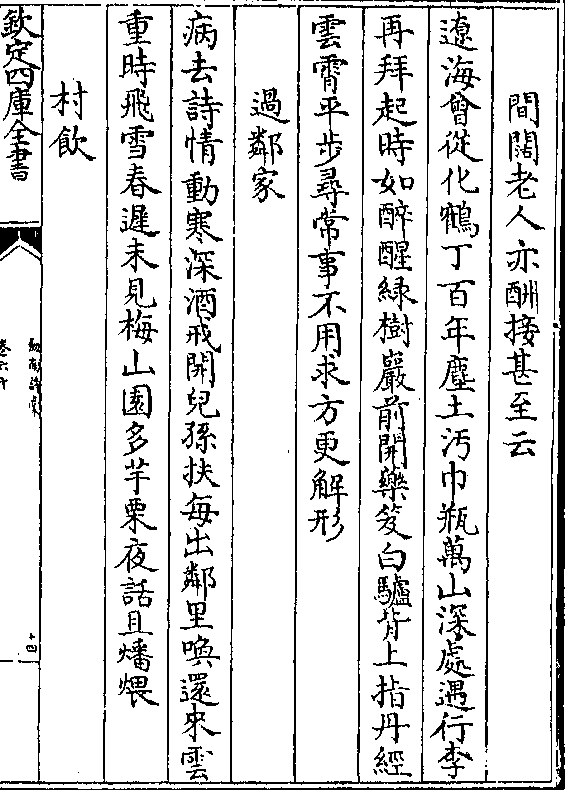 間闊老人亦酬接甚至云
遼海曾從化鶴丁百年塵土汚巾瓶萬山深處遇行李
再拜起時如醉醒緑樹巖前開藥笈白驢背上指丹經
雲霄平步尋常事不用求方更解形
過鄰家
病去詩情動寒深酒戒開兒孫扶每出鄰里喚還來雲
重時飛雪春遲未見梅山園多芋栗夜話且燔煨
村飲
欽定四庫全書
劍南詩稾
卷六十
十四